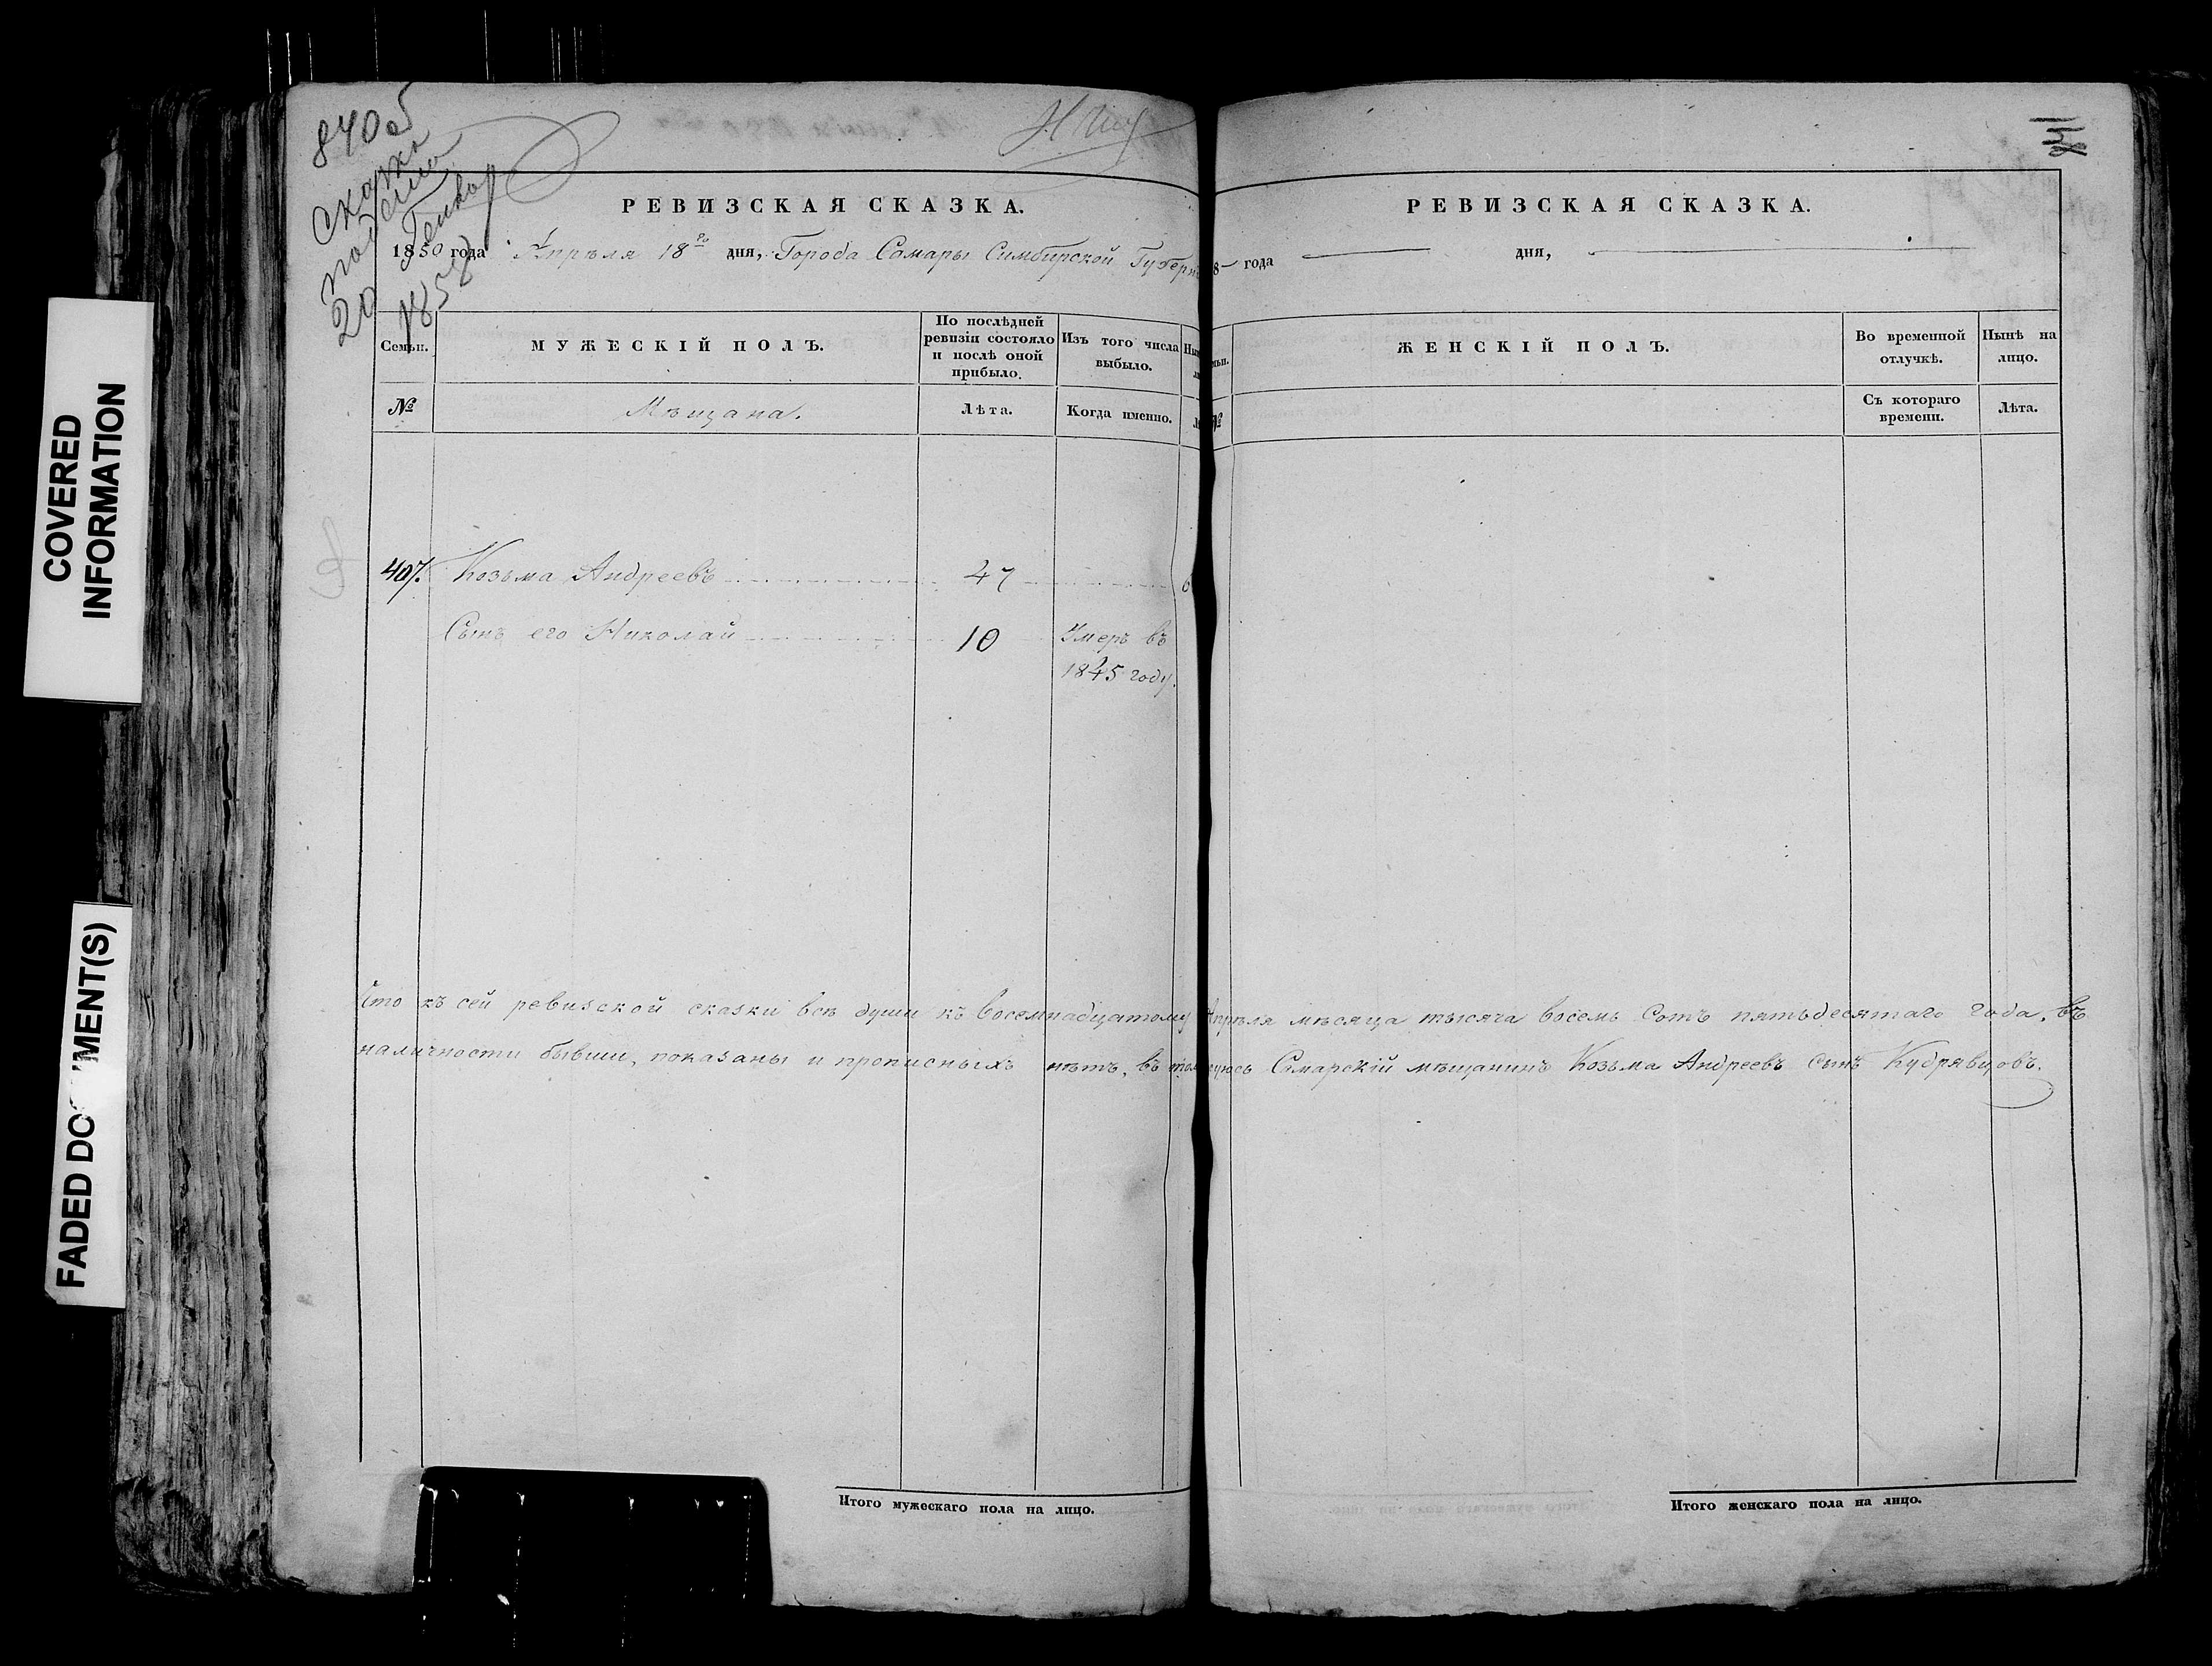 840
сказка
подана
20 Генвар
1858
РЕВИЗСКАЯ СКАЗКА.
1850 года Апрѣля 18го дня, Города Самары Симбирской Губерн
Семьи.
МУЖЕСКІЙ ПОЛЪ.
По послѣдней ревизіи состояло и послѣ оной прибыло.
Изъ того числа выбыло.
№
Мѣщана.
Лѣта.
Когда именно.
407. Козьма Андреевъ 47
Сынъ его Николай 10 Умеръ въ
1845 году.
Что къ сей ревизской сказки всѣ души къ восемнадцатому
наличности бывши, показаны и прописныхъ нѣтъ, въ том
Итого мужескаго пола на лицо.
РЕВИЗСКАЯ СКАЗКА.
8 года дня,
ЖЕНСКІЙ ПОЛЪ.
Во временной отлучкѣ.
Нынѣ на лицо.
№
Съ котораго времени.
Лѣта.
Апрѣля мѣсяца тысяча восемь Сотъ пятьдесятаго года, въ
Самарскій мѣщанинъ Козьма Андреевъ сынъ Кудрявцовъ.
Итого женскаго пола на лицо.
COVERED
INFORMATION
FADED DOCUMENT(S)